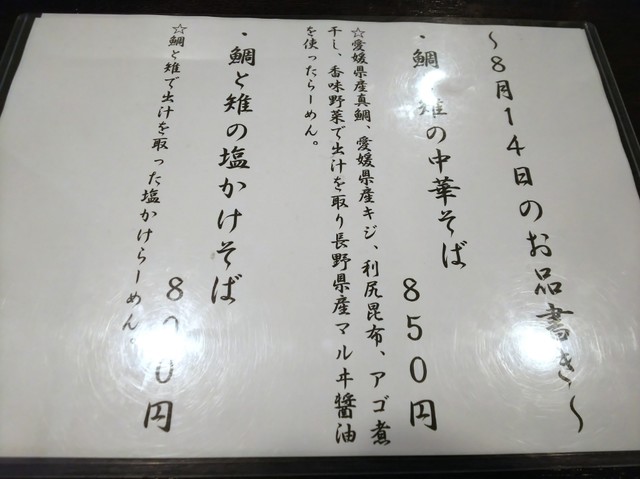 ～８月１４日のお品書き～
・鯛と雉の中華そば
８５０円
☆愛媛県産真鯛、愛媛県産キジ、利尻昆布、アゴ煮
干し、香味野菜で出汁を取り長野県産マルヰ醤油
を使ったらーめん。
・鯛と雉の塩かけそば
８００円
☆鯛と雉で出汁を取った塩かけらーめん。